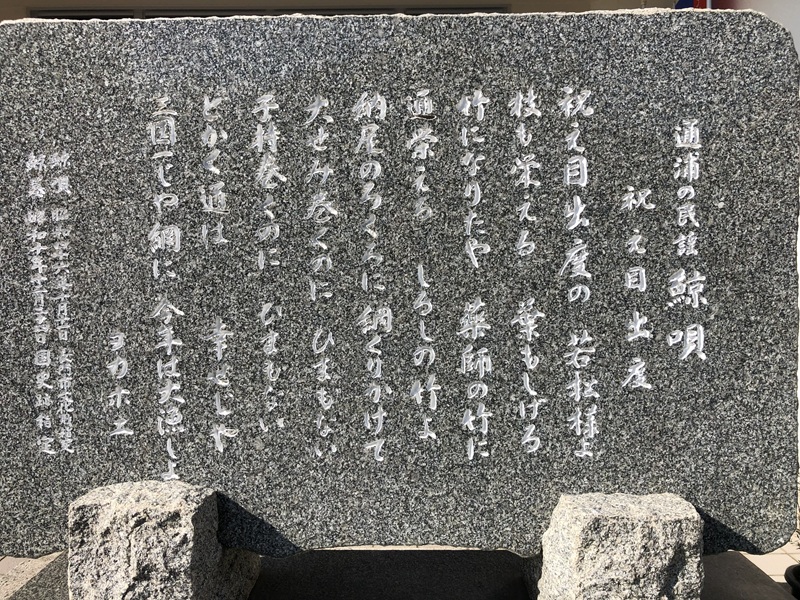 通浦の民謡 鯨唄
祝え目出度
祝え目出度の 若松様よ
枝も栄える 葉もしげる
竹になりたや 薬師の竹に
通栄える しるしの竹よ
納屋のろくろに 綱くりかけて
大せみ巻くのに ひまもない
子持巻くのに ひまもない
とかく通は 幸せじや
三国一じや綱に 今年は大漁しよ
ヨカホエ
鯨唄 昭和 年十月一日 長門市文化財指定
鯨墓 昭和十年十二月 日 国史跡指定